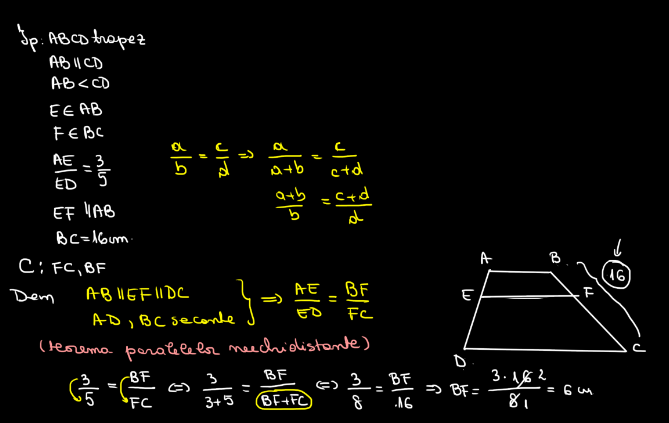 Ip. ABCD trapez
AB || CD
AB < CD
E ∈ AB
F ∈ BC
AE/ED = 3/5
EF || AB
BC = 16 cm.
a/b = c/d ⇒ a/(a+b) = c/(c+d)
(a+b)/b = (c+d)/d
C: FC, BF
Dem AB || EF || DC
AD, BC secante } ⇒ AE/ED = BF/FC
(teorema paralelelor neechidistante)
3/5 = BF/FC ⇔ 3/(3+5) = BF/(BF+FC) ⇔ 3/8 = BF/16 ⇒ BF = 3·16 2/8 1 = 6 cm
A B 16
E F
D C